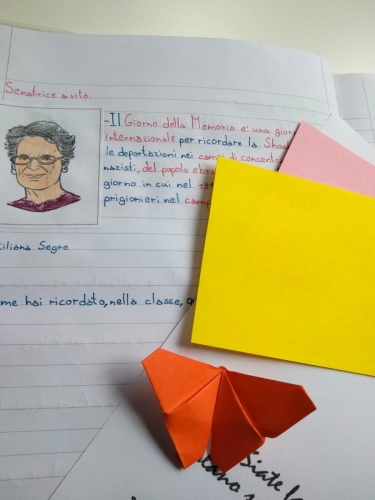 Senatrice a vita.
-Il Giorno della Memoria e' una gior
internazionale per ricordare la Shoa
le deportazioni nei campi di concent
nazisti, del popolo ebra
giorno in cui nel 19
prigionieri nel camp
iliana Segre
me hai ricordato, nella classe,
Siate